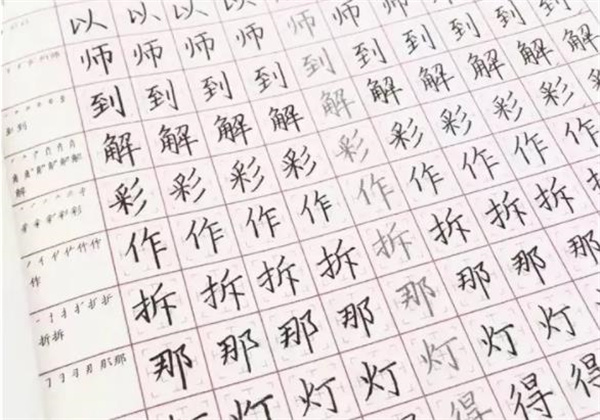 以 以 以 以
师 师 师 师 师 师 师 师
到 到 到 到 到 到 到 到 到 到 到
解 解 解 解 解 解 解 解 解 解 解 解
彩 彩 彩 彩 彩 彩 彩 彩 彩 彩
作 作 作 作 作 作 作 作 作
拆 拆 拆 拆 拆 拆 拆 拆 拆
那 那 那 那 那 那 那 那
灯 灯 灯 灯 灯 灯 灯
得 得 得